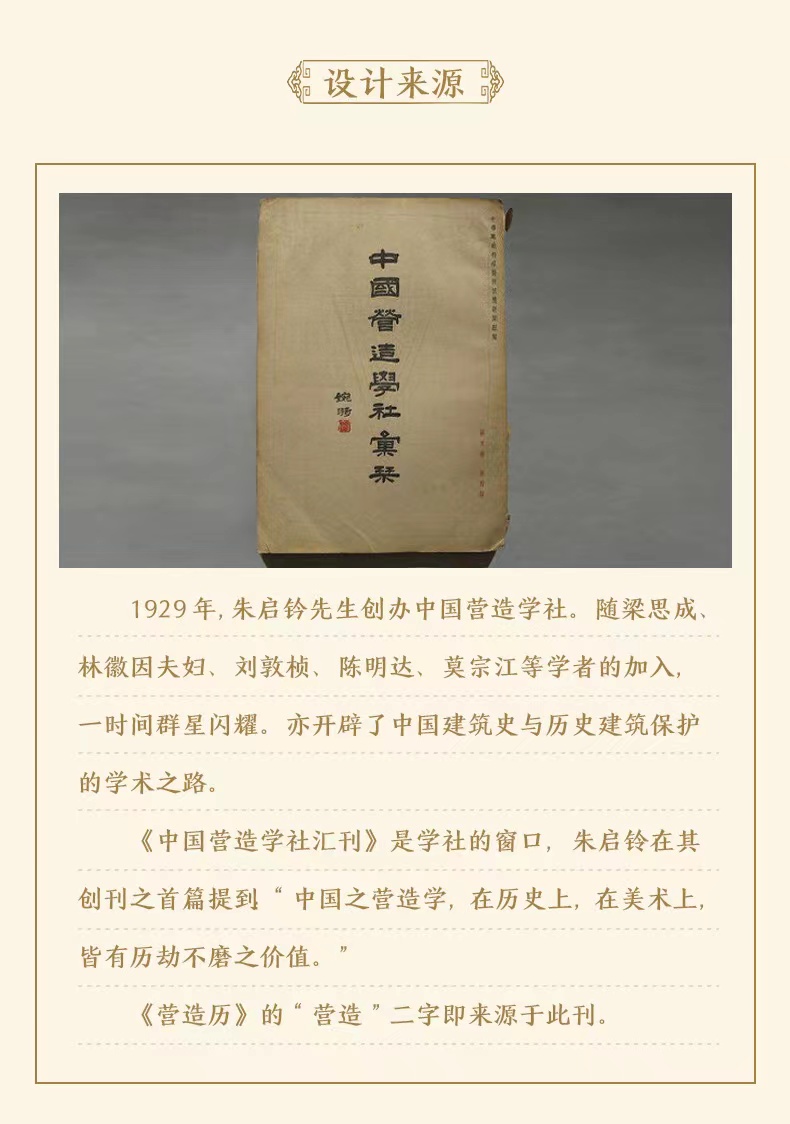 设计来源
中國營造學社彙栞
1929年,朱启钤先生创办中国营造学社。随梁思成、
林徽因夫妇、刘敦桢、陈明达、莫宗江等学者的加入,
一时间群星闪耀。亦开辟了中国建筑史与历史建筑保护
的学术之路。
《中国营造学社汇刊》是学社的窗口, 朱启铃在其
创刊之首篇提到:“中国之营造学, 在历史上, 在美术上,
皆有历劫不磨之价值。”
《营造历》的“营造”二字即来源于此刊。